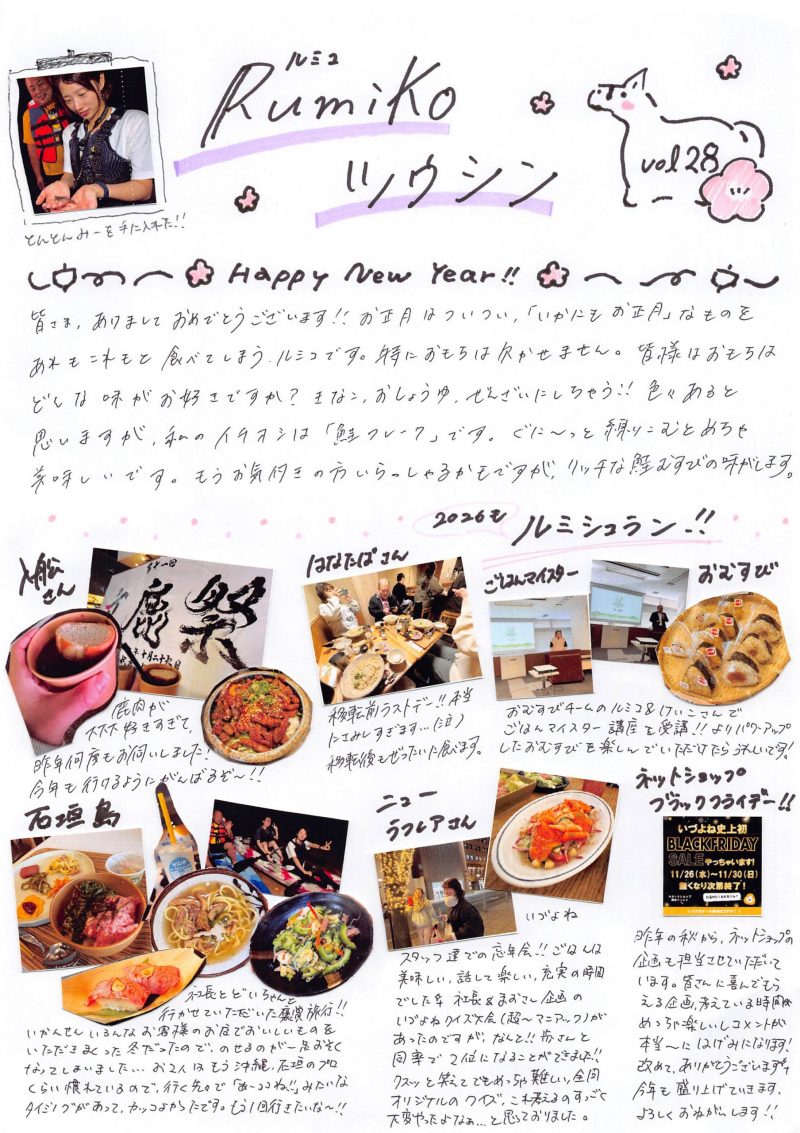 ルミコ
Rumiko
ツウシン
vol 28
とんとんみーを手に入れた!!
Happy New Year!!
皆さま、ありまして おめでとうございます!! お正月は ついつい、「いかにも お正月」なものを
あれも これもと 食べてしまう、ルミコです。特に おもちは 欠かせません。皆様は おもちは
どんな 味が お好きですか? きなこ、おしょうゆ、ぜんざいにしちゃう!! 色々あると
思いますが、私の イチオシは「鮭フレーク」です。ぐに〜っと 練りこむと めちゃ
美味しいです。もう お気付きの方 いらっしゃるかもですが、リッチな 鮭むすびの味がします。
2026も ルミシュラン!!
入船さん
鹿祭
鹿肉が
大大好きすぎて、
昨年何度もお伺いしました!
今年も 行けるようにがんばるぞ〜!!
はなたばさん
移転前ラストデー!! 本当
にさみしすぎます…(泣)
移転後もぜったいに食べます。
ごはんマイスター
おむすび
おむすびチームの ルミコ&けいこさんで
ごはんマイスター 講座を受講!! よりパワーアップ
したおむすびを楽しんでいただけたら うれしいです!
石垣島
社長とどいちゃんと
行かせていただいた褒賞旅行!!
いかんせん いろんな お客様の お店で おいしいものを
いただきまくった 冬だったので、のせるのが一品おそく
なってしまいました… お2人はもう 沖縄、石垣のプロ
くらい慣れているので、行く先々で「あーココね!!」みたいな
タイミングがあって、カッコよかったです。もう1回行きたいな〜!!
ニュー
ラフレアさん
いづよね
スタッフ達での忘年会!! ごはんは
美味しい、話して楽しい、充実の時間
でした 社長&まおさん 企画の
いづよねクイズ大会(超〜マニアック)が
あったのですが、なんと!! 歩さんと
同率で 2位になることができました!!
クスッと 笑えて でもめっちゃ難しい、全問
オリジナルのクイズ、これ考えるのすっごく
大変やったよなぁ…と思っておりました。
ネットショップ
ブラックフライデー!!
いづよね史上初
BLACKFRIDAY
SALEやっちゃいます!
11/26(水)〜11/30(日)
無くなり次第終了!
昨年の秋から、ネットショップの
企画も担当させていただいて
います。皆さんに 喜んでもら
える企画、考えている時間は
めっちゃ楽しいし コメントが
本当〜に はげみになります!
改めて、ありがとうございます
今年も盛り上げていきます、
よろしく おねがいします!!